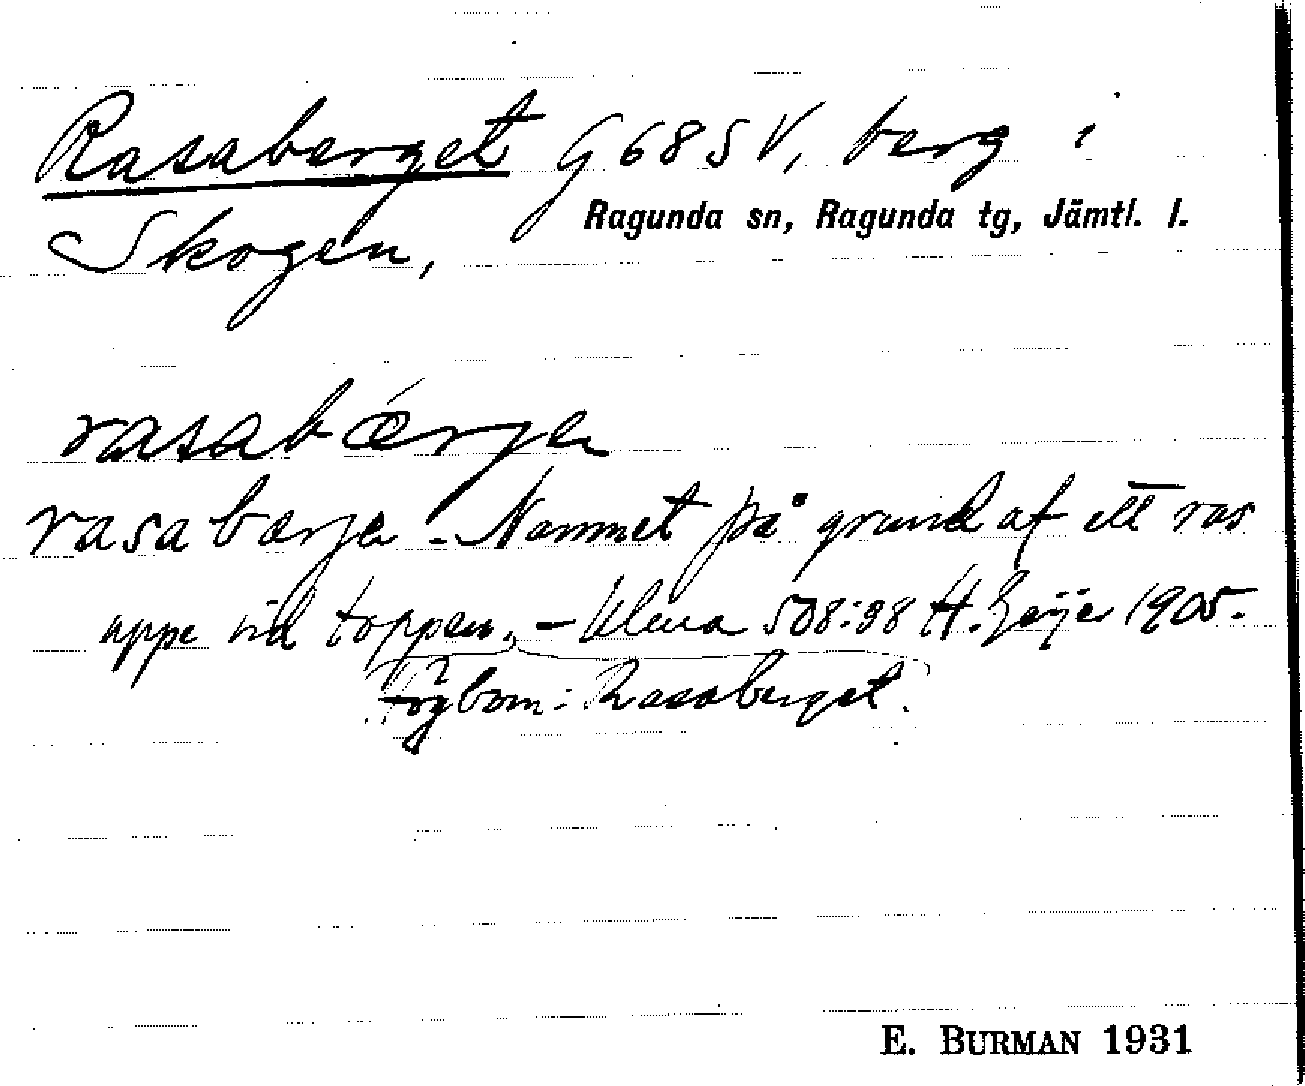 Rasaberget G68SV, berg i
Ragunda sn, Ragunda tg, Jämtl. l.
Skogen,
rasabærja
rasabærja - Namnet på grund af ett ras
uppe vid toppen. - Uleva 508:98 H. Geijer 1905.
Högbom: Rasaberget.
E. BURMAN 1931